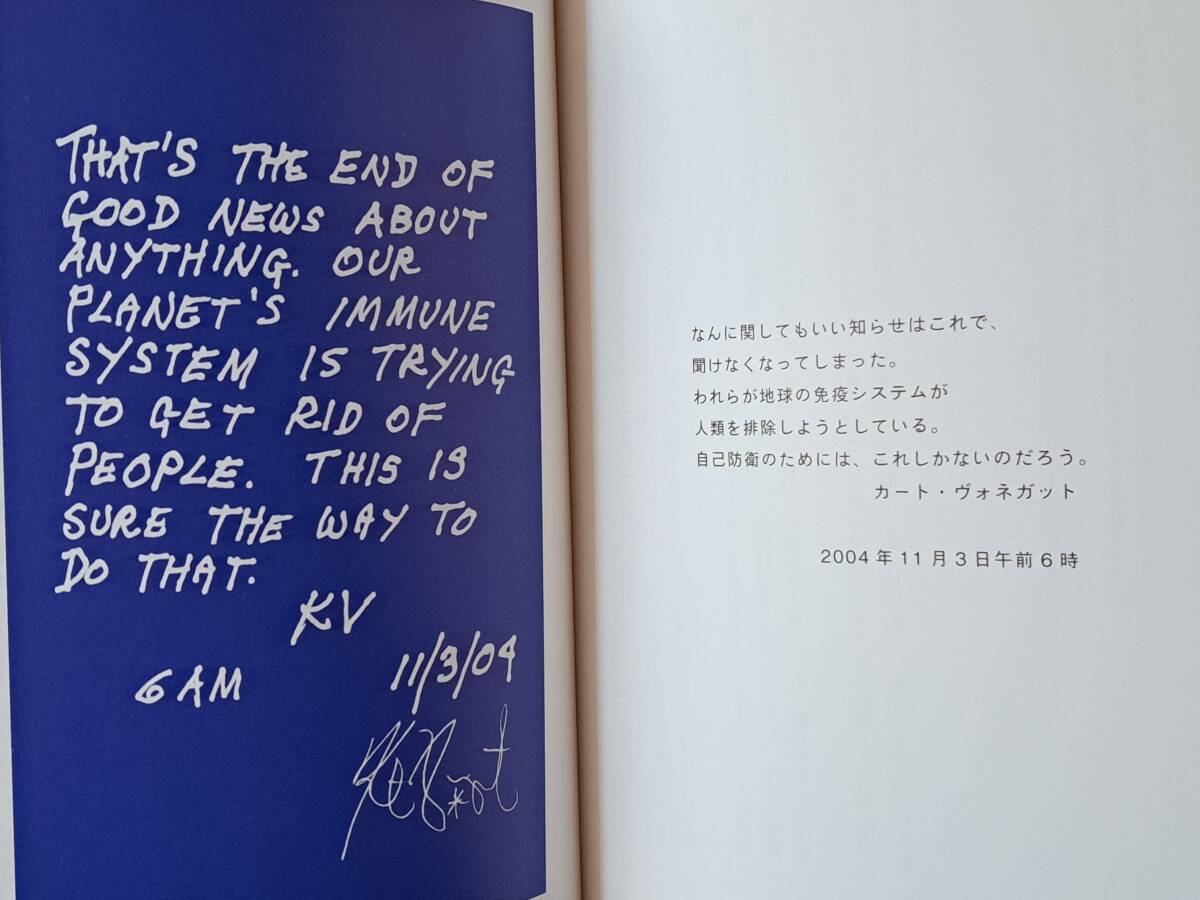 THAT'S THE END OF
GOOD NEWS ABOUT
ANYTHING. OUR
PLANET'S IMMUNE
SYSTEM IS TRYING
TO GET RID OF
PEOPLE. THIS IS
SURE THE WAY TO
DO THAT.
KV
11/3/04
6 AM
なんに関してもいい知らせはこれで、
聞けなくなってしまった。
われらが地球の免疫システムが
人類を排除しようとしている。
自己防衛のためには、これしかないのだろう。
カート・ヴォネガット
2004年11月3日午前6時